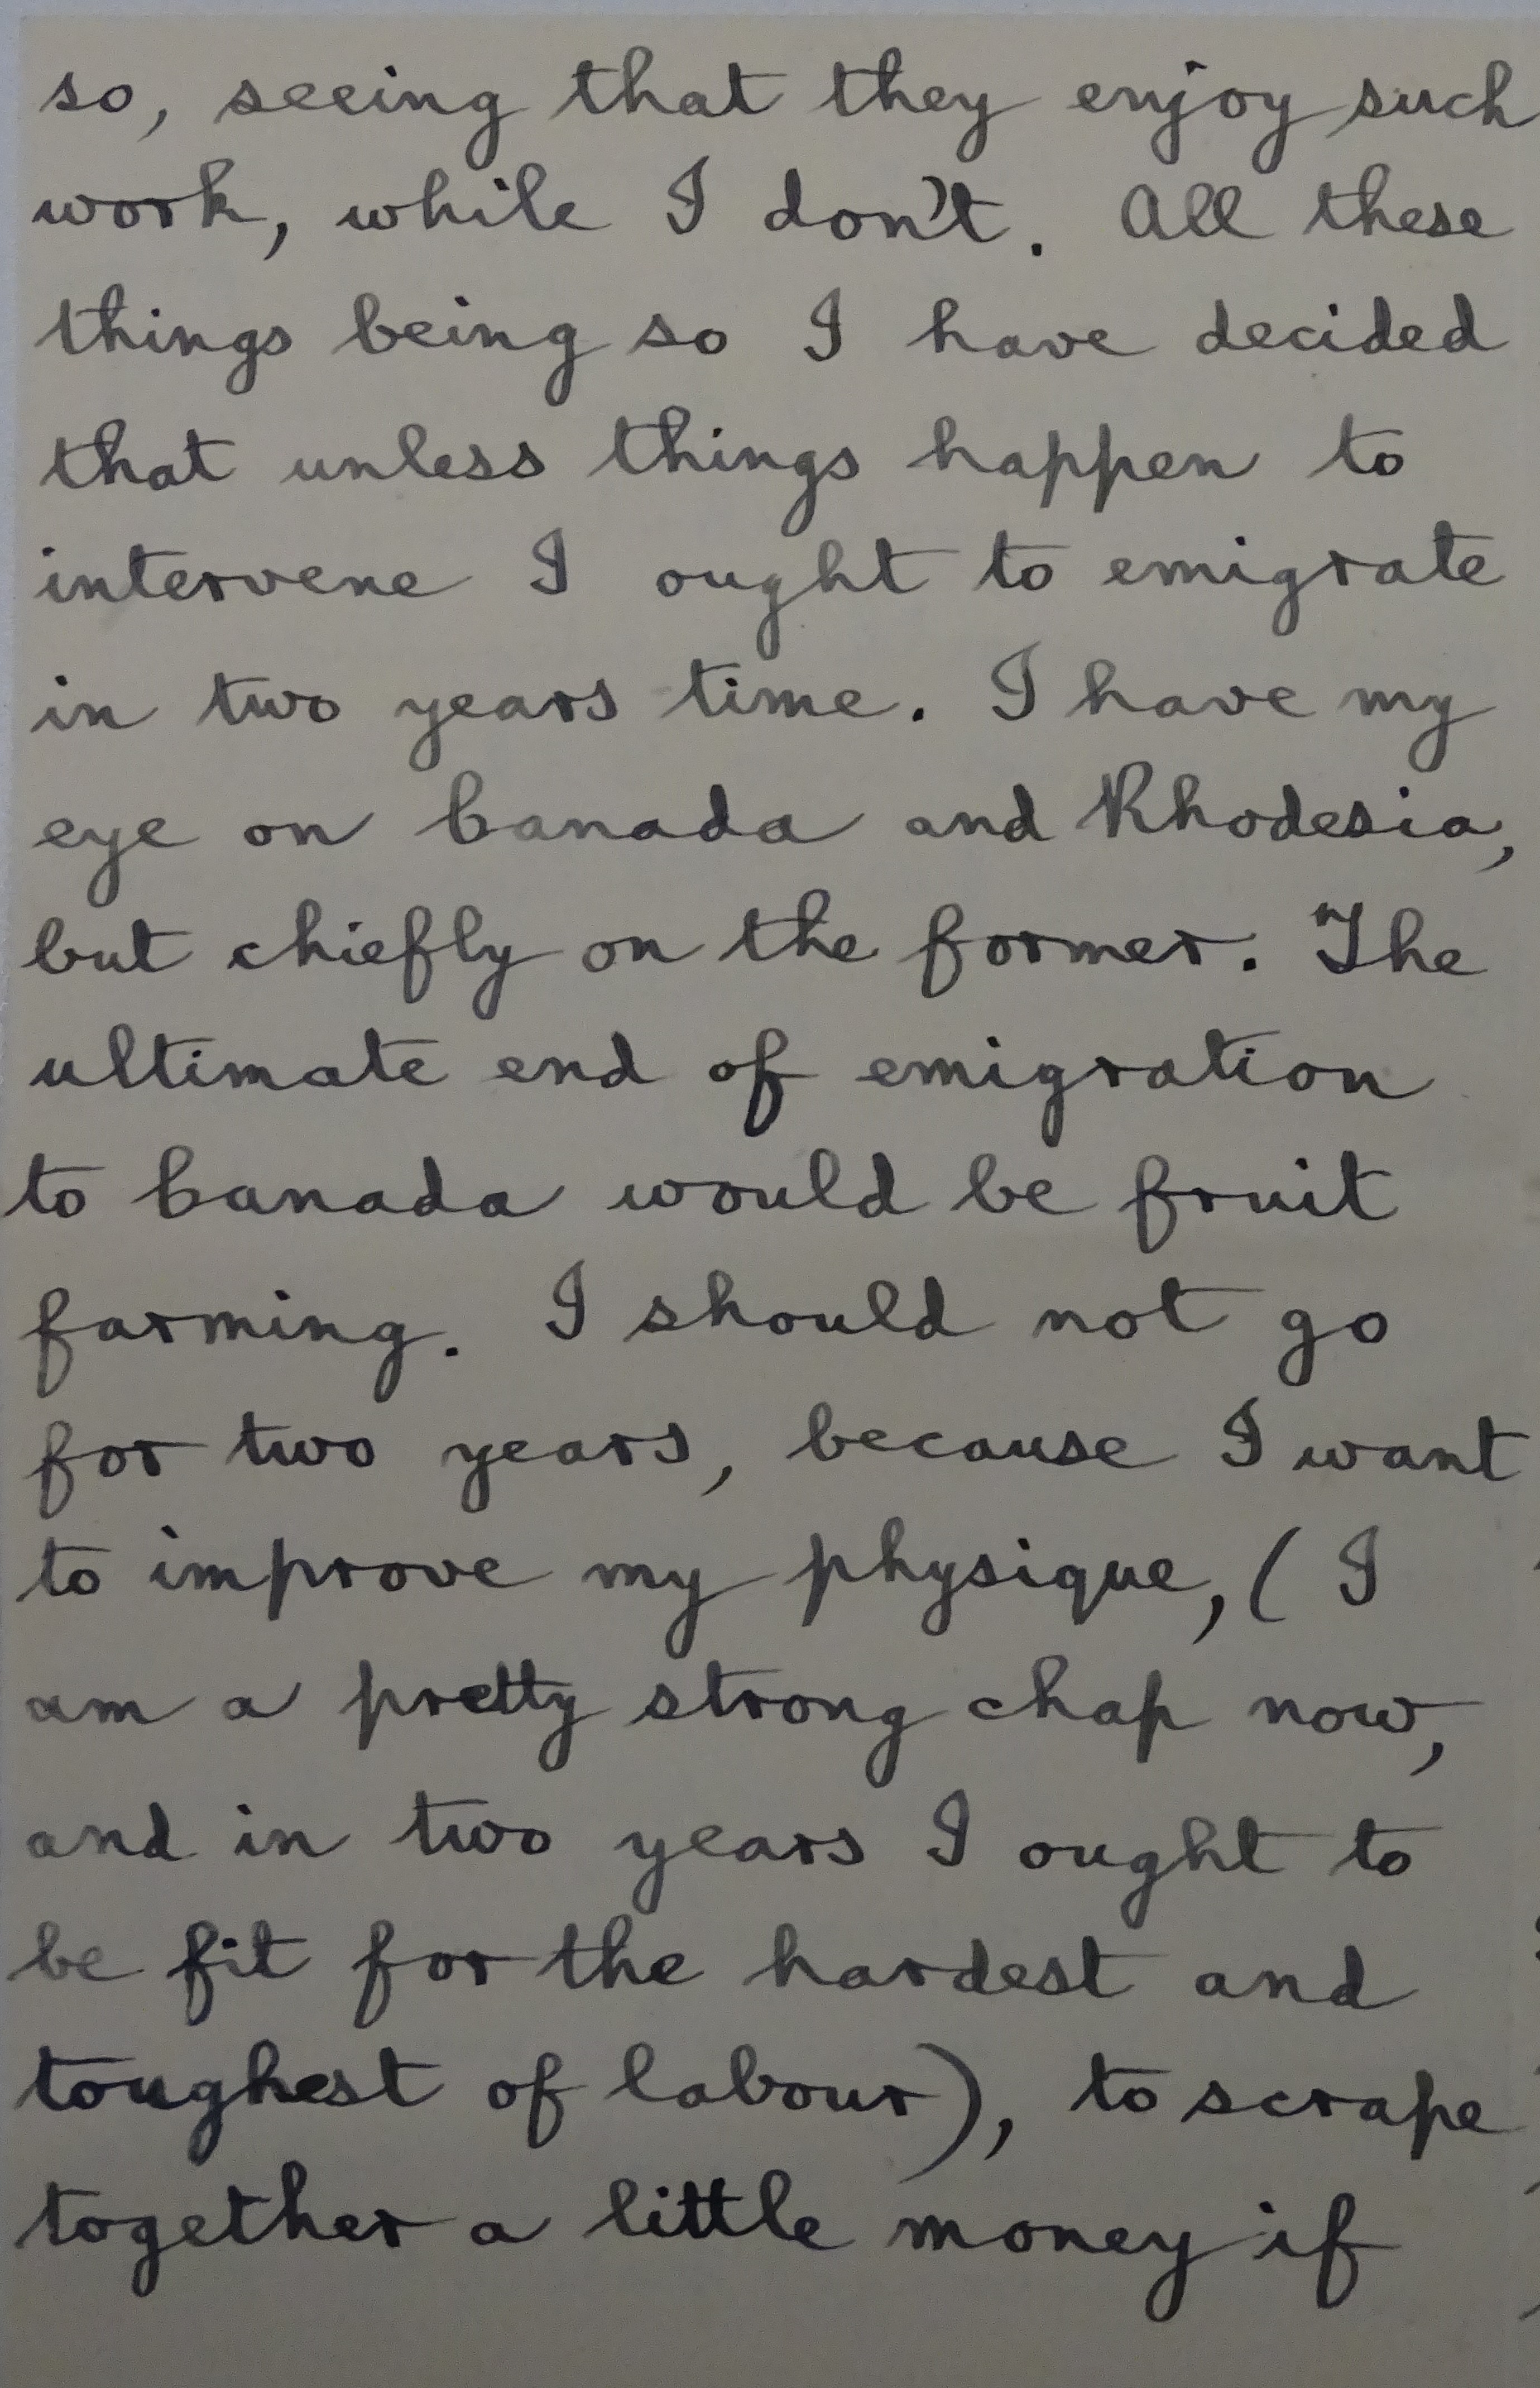 so, seeing that they enjoy such
work, while I don't. All these
things being so I have decided
that unless things happen to
intervene I ought to emigrate
in two years time. I have my
eye on Canada and Rhodesia,
but chiefly on the former. The
ultimate end of emigration
to Canada would be fruit
farming. I should not go
for two years, because I want
to improve my physique, (I
am a pretty strong chap now,
and in two years I ought to
be fit for the hardest and
toughest of labour), to scrape
together a little money if